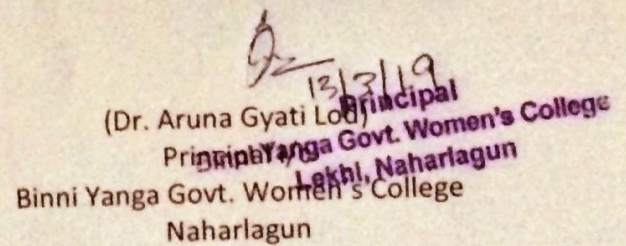 13/3/19
(Dr. Aruna Gyati Lod)
Principal
Binni Yanga Govt. Women's College
Naharlagun
Principal
Yanga Govt. Women's College
Lekhi, Naharlagun